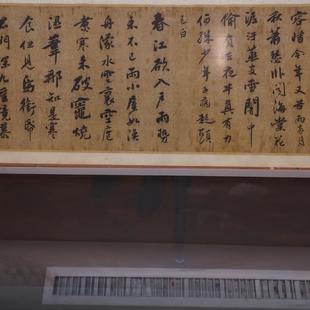 容惜今年又苦雨兩月
秋蕭瑟卧聞海棠花
泥汙燕支雪闇中
偷負去夜半真有力
何殊少年子病起頭
已白
春江欲入戶雨勢
來不已雨小屋如漁
舟濛水雲裏空庖
煮寒菜破竈燒
濕葦那知是寒
食但見烏銜帋
君門深九重墳墓